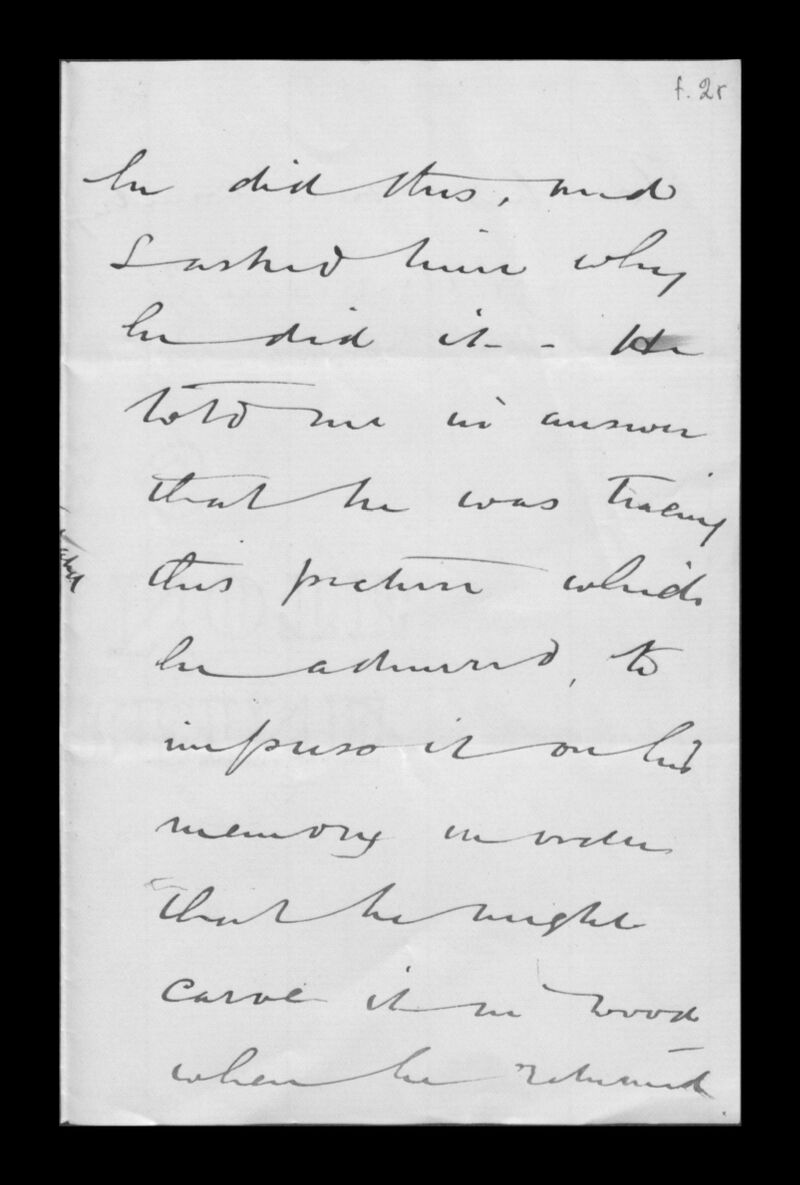 f. 2r
he did this, and
I asked him why
he did it - He
told me in answer
that he was tracing
this picture which
he admired, to
impress it on his
memory in order
that he might
carve it in wood
when he returned